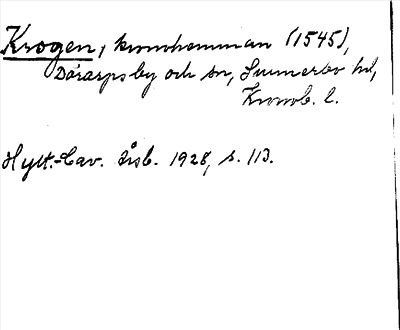 Krogen, kronohemman (1545),
Dörarps by och sn, Sunnerbo hd,
Kronob. l.
Hylt.-Cav. årsb. 1928, s. 113.